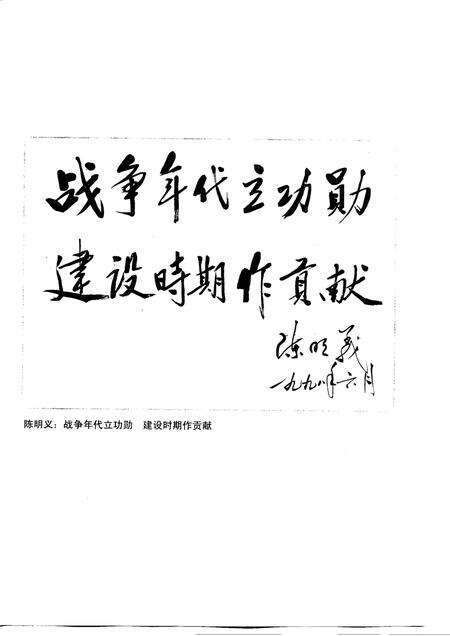 战争年代立功勋
建设時期作貢献
陈明義
一九九八年六月
陈明义：战争年代立功勋　建设时期作贡献